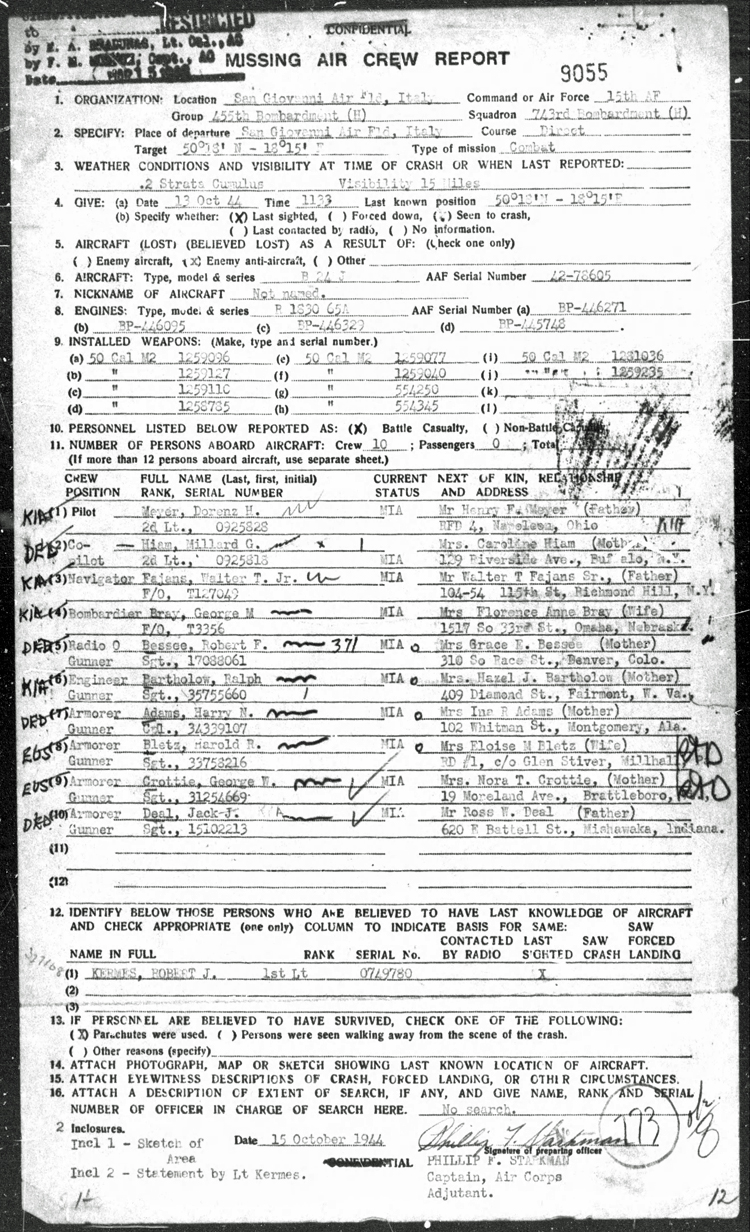 RESTRICTED
CONFIDENTIAL
to
by E. A. BRADUNAS, Lt. Col., AC
by F. M. Capt., AC
Date
MISSING AIR CREW REPORT
9055
1. ORGANIZATION: Location San Giovanni Air Fld, Italy Command or Air Force 15th AF
Group 455th Bombardment (H) Squadron 743rd Bombardment (H)
2. SPECIFY: Place of departure San Giovanni Air Fld, Italy Course Direct
Target 50°18' N - 18°15' E Type of mission Combat
3. WEATHER CONDITIONS AND VISIBILITY AT TIME OF CRASH OR WHEN LAST REPORTED:
.2 Strata Cumulus Visibility 15 Miles
4. GIVE: (a) Date 13 Oct 44 Time 1133 Last known position 50°18'N - 18°15'E
(b) Specify whether: (X) Last sighted, ( ) Forced down, ( ) Seen to crash,
( ) Last contacted by radio, ( ) No information.
5. AIRCRAFT (LOST) (BELIEVED LOST) AS A RESULT OF: (Check one only)
( ) Enemy aircraft, (X) Enemy anti-aircraft, ( ) Other
6. AIRCRAFT: Type, model & series B 24 J AAF Serial Number 42-78605
7. NICKNAME OF AIRCRAFT Not named.
8. ENGINES: Type, model & series R 1830 65A AAF Serial Number (a) BP-446271
(b) BP-446095 (c) BP-446329 (d) BP-445748 .
9. INSTALLED WEAPONS: (Make, type and serial number.)
(a) 50 Cal M2 1259096 (e) 50 Cal M2 1259077 (i) 50 Cal M2 1281036
(b) " 1259127 (f) " 1259040 (j) " 1259235
(c) " 1259110 (g) " 554250 (k)
(d) " 1258785 (h) " 554345 (l)
10. PERSONNEL LISTED BELOW REPORTED AS: (X) Battle Casualty, ( ) Non-Battle Casualty
11. NUMBER OF PERSONS ABOARD AIRCRAFT: Crew 10 ; Passengers 0 ; Total
(If more than 12 persons aboard aircraft, use separate sheet.)
CREW FULL NAME (Last, first, initial) CURRENT NEXT OF KIN, RELATIONSHIP
POSITION RANK, SERIAL NUMBER STATUS AND ADDRESS
KIA (1) Pilot Meyer, Dorenz H. Mr Henry F. Meyer (Father)
2d Lt., 0925828 RFD 4, Napoleon, Ohio KIA
DED (2) Co- Hiam, Millard G. x 1 Mrs. Caroline Hiam (Mother)
pilot 2d Lt., 0925818 MIA 129 Riverside Ave., Buf alo, N.Y.
KIA (3) Navigator Fajans, Walter T. Jr. Mr Walter T Fajans Sr., (Father)
F/O, T127049 MIA 104-54 115th St, Richmond Hill, N.Y.
KIA (4) Bombardier Bray, George M Mrs Florence Anne Bray (Wife)
F/O, T3356 MIA 1517 So 33rd St., Omaha, Nebraska.
DED (5) Radio O Bessee, Robert F. 371 MIA Mrs Grace E. Bessee (Mother)
Gunner Sgt., 17088061 310 So Race St., Denver, Colo.
KIA (6) Engineer Bartholow, Ralph MIA Mrs. Hazel J. Bartholow (Mother)
Gunner Sgt., 35755660 409 Diamond St., Fairmont, W. Va.,
DED (7) Armorer Adams, Harry N. MIA Mrs Ina R Adams (Mother)
Gunner Cpl., 34339107 102 Whitman St., Montgomery, Ala.
EUS (8) Armorer Bletz, Harold R. MIA Mrs Eloise M Bletz (Wife)
Gunner 33758216 RD #1, c/o Glen Stiver, Millhall
EUS (9) Armorer Crottie, George W. MIA Mrs. Nora T. Crottie, (Mother)
Gunner Sgt., 31254669 19 Moreland Ave., Brattleboro,
DED (10) Armorer Deal, Jack J. MIA Mr Ross W. Deal (Father)
Gunner Sgt., 15102213 620 E Battell St., Mishawaka, Indiana.
(11)
(12)
12. IDENTIFY BELOW THOSE PERSONS WHO ARE BELIEVED TO HAVE LAST KNOWLEDGE OF AIRCRAFT
AND CHECK APPROPRIATE (one only) COLUMN TO INDICATE BASIS FOR SAME: SAW
CONTACTED LAST SAW FORCED
NAME IN FULL RANK SERIAL No. BY RADIO SIGHTED CRASH LANDING
(1) KERMES, ROBERT J. 1st Lt 0749780 X
(2)
(3)
13. IF PERSONNEL ARE BELIEVED TO HAVE SURVIVED, CHECK ONE OF THE FOLLOWING:
(X) Parachutes were used. ( ) Persons were seen walking away from the scene of the crash.
( ) Other reasons (specify)
14. ATTACH PHOTOGRAPH, MAP OR SKETCH SHOWING LAST KNOWN LOCATION OF AIRCRAFT.
15. ATTACH EYEWITNESS DESCRIPTIONS OF CRASH, FORCED LANDING, OR OTHER CIRCUMSTANCES.
16. ATTACH A DESCRIPTION OF EXTENT OF SEARCH, IF ANY, AND GIVE NAME, RANK AND SERIAL
NUMBER OF OFFICER IN CHARGE OF SEARCH HERE. No search.
173
2 Inclosures.
Incl 1 - Sketch of Date 15 October 1944 Phillip F. Starkman
Area Signature of preparing officer
CONFIDENTIAL PHILLIP F. STARKMAN
Incl 2 - Statement by Lt Kermes. Captain, Air Corps
Adjutant.
12